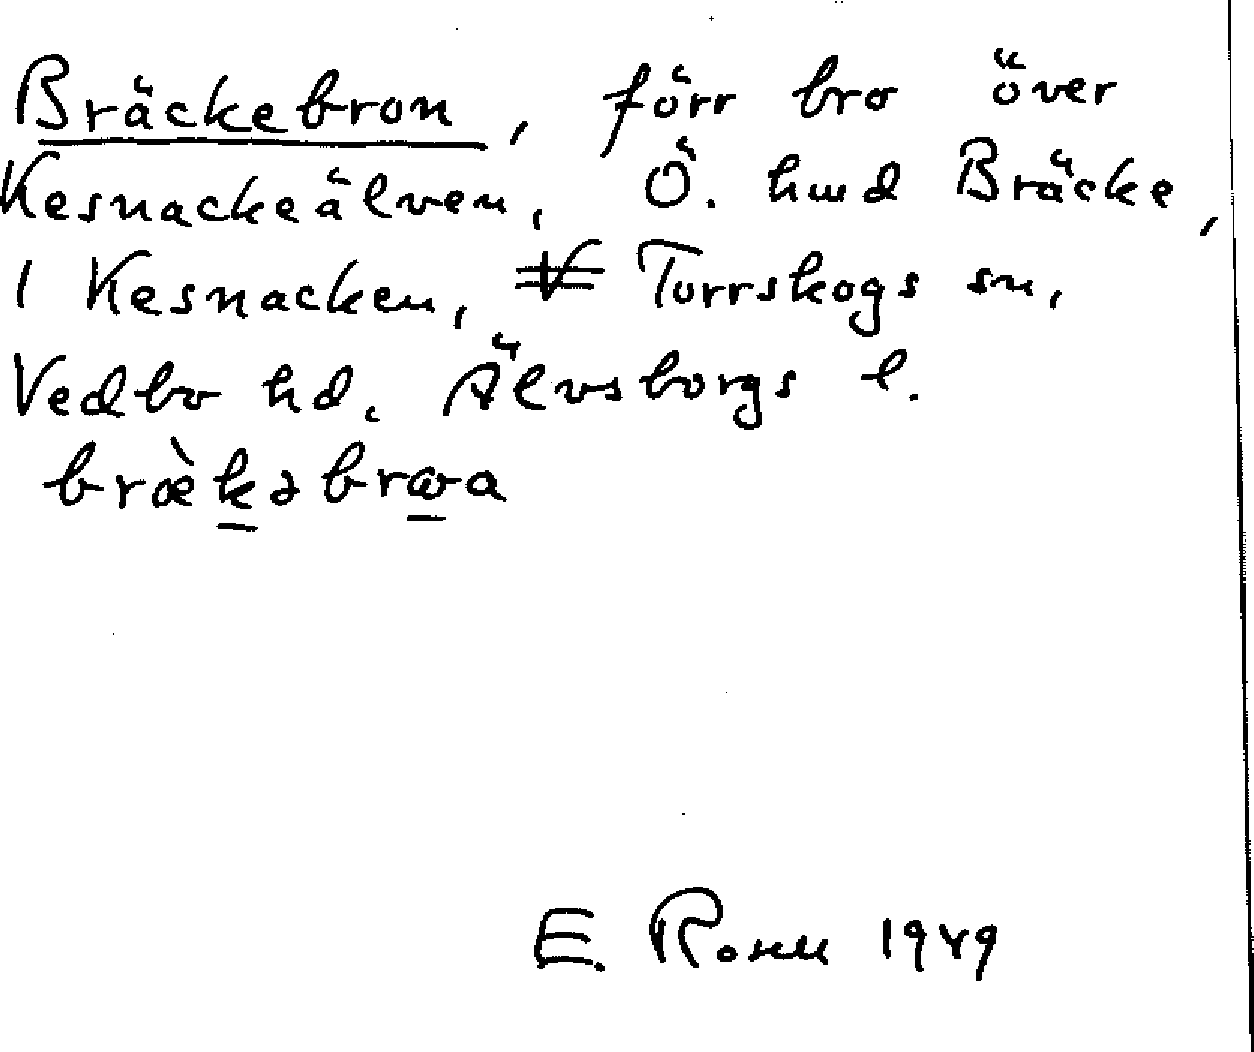 Bräckebron, förr bro över
Kesnackeälven, Ö. hmd Bräcke,
1 Kesnacken, Torrskogs sn,
Vedbo hd, Älvsborgs l.
bræ̀kəbrωa
E. Rosell 1949